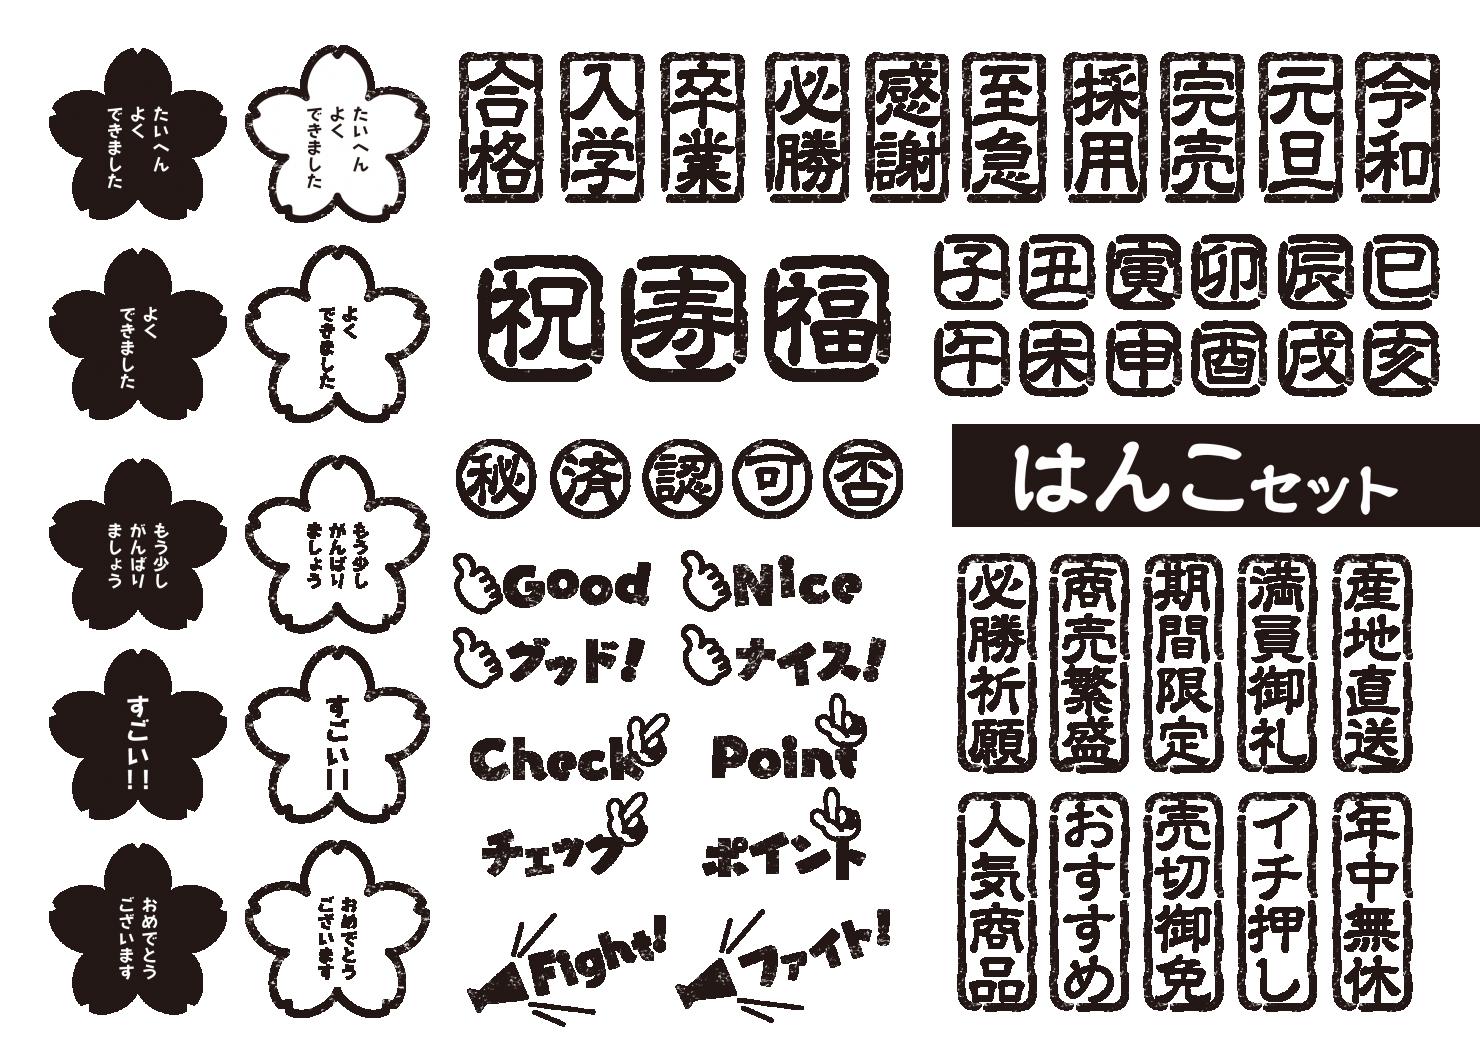 たいへん
よく
できました
たいへん
よく
できました
よく
できました
よく
できました
もう少し
がんばり
ましょう
もう少し
がんばり
ましょう
すごい!!
すごい!!
おめでとう
ございます
おめでとう
ございます
合格
入学
卒業
必勝
感謝
至急
採用
完売
元旦
令和
祝
寿
福
子
丑
寅
卯
辰
巳
午
未
申
酉
戌
亥
秘
済
認
可
否
はんこセット
Good
Nice
グッド!
ナイス!
Check
Point
チェック
ポイント
Fight!
ファイト!
必勝祈願
商売繁盛
期間限定
満員御礼
産地直送
人気商品
おすすめ
売切御免
イチ押し
年中無休